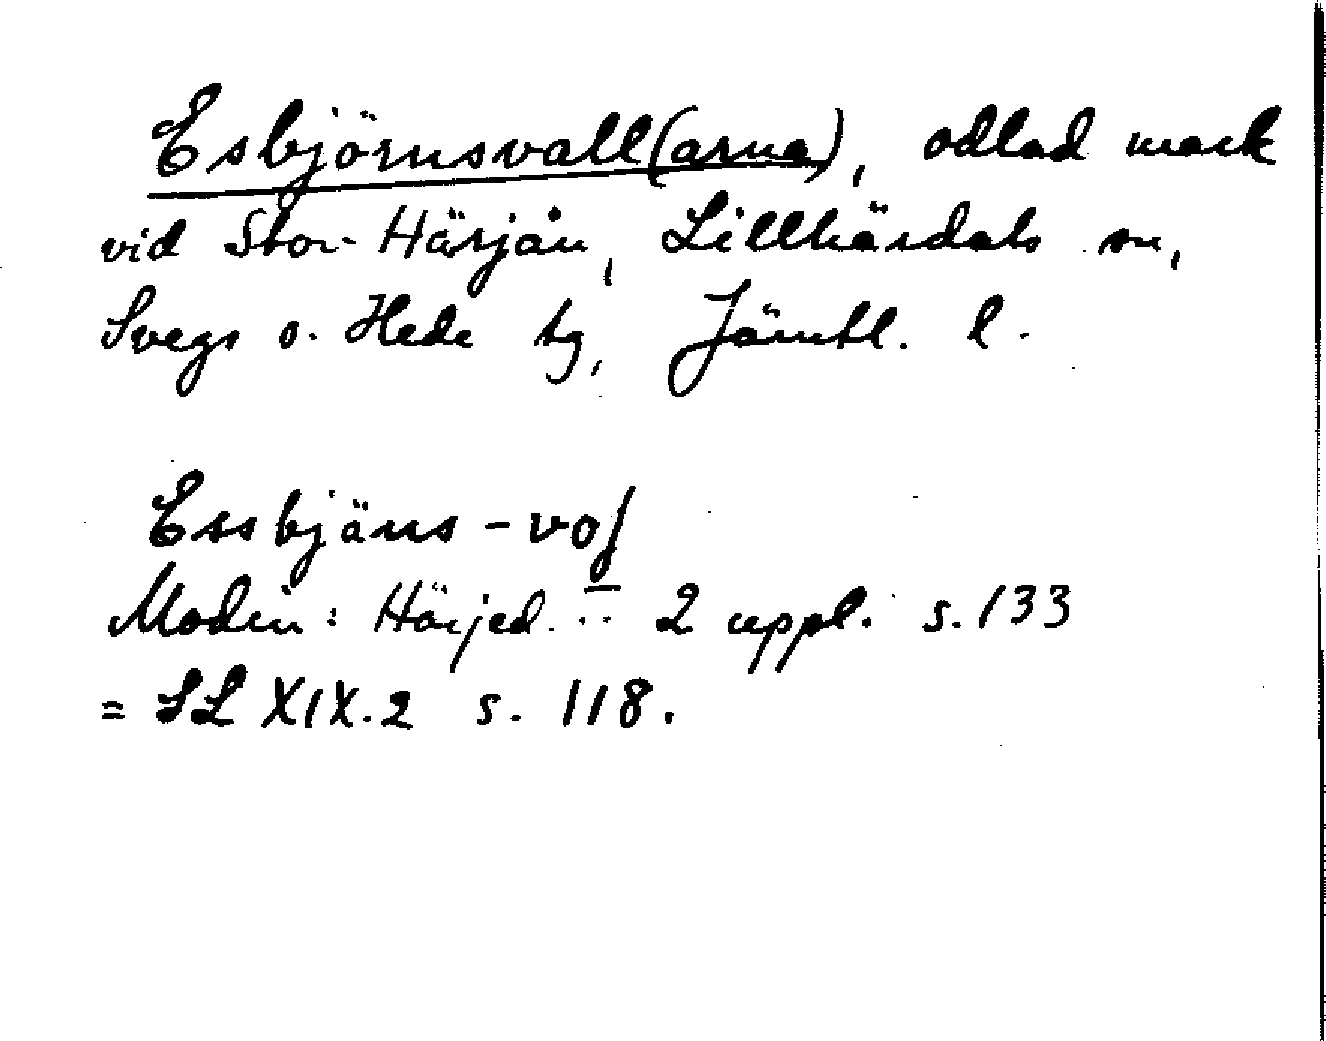 Esbjörnsvall(arna), odlad mark
vid Stor-Härjån, Lillhärdals sn,
Svegs o. Hede tg, Jämtl. l.
Essbjäns-voſ
Modin: Härjed. ... 2 uppl. s. 133
= SL XIX.2 s. 118.